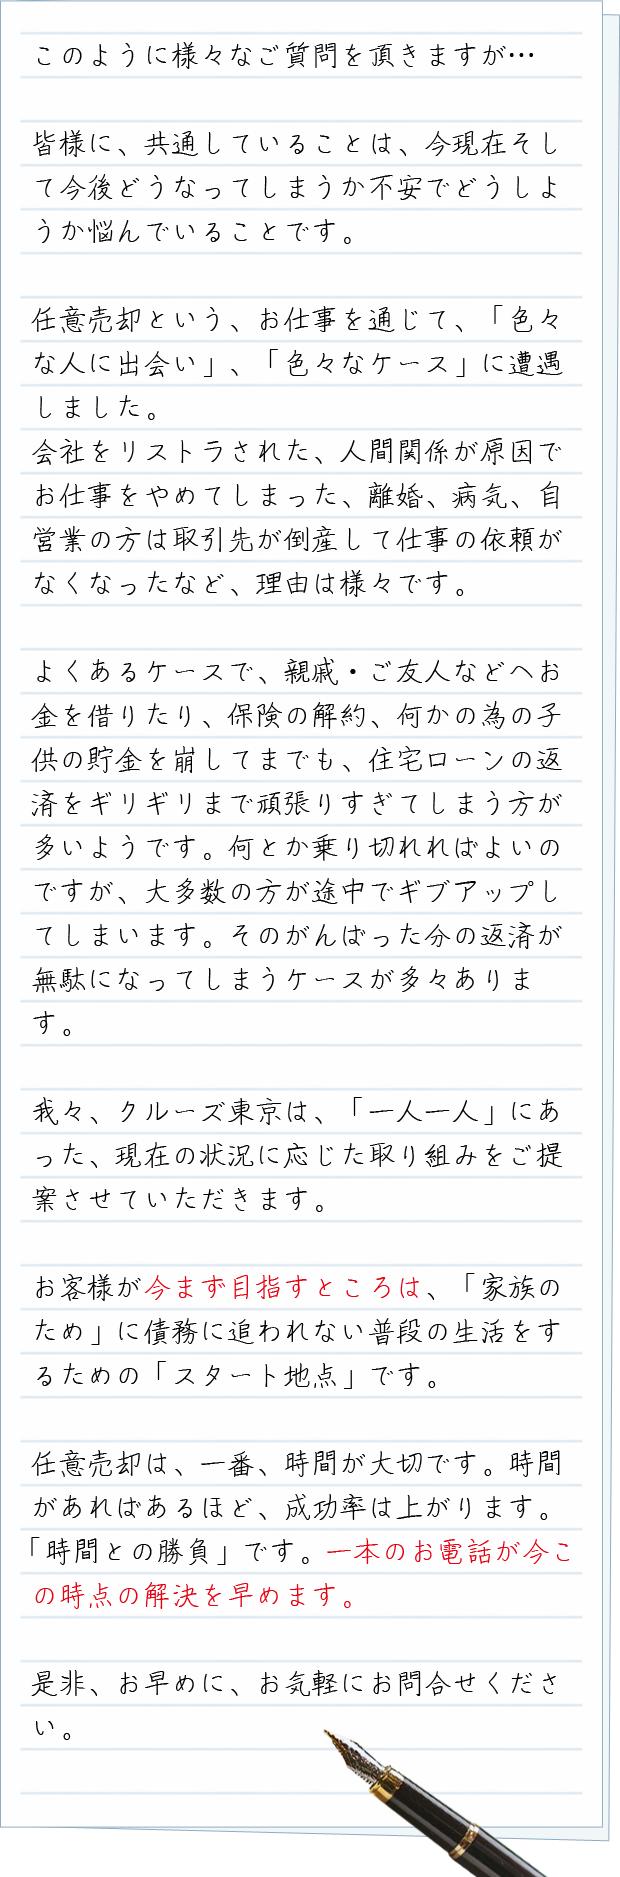 このように様々なご質問を頂きますが…
皆様に、共通していることは、今現在そし
て今後どうなってしまうか不安でどうしよ
うか悩んでいることです。
任意売却という、お仕事を通じて、「色々
な人に出会い」、「色々なケース」に遭遇
しました。
会社をリストラされた、人間関係が原因で
お仕事をやめてしまった、離婚、病気、自
営業の方は取引先が倒産して仕事の依頼が
なくなったなど、理由は様々です。
よくあるケースで、親戚・ご友人などへお
金を借りたり、保険の解約、何かの為の子
供の貯金を崩してまでも、住宅ローンの返
済をギリギリまで頑張りすぎてしまう方が
多いようです。何とか乗り切れればよいの
ですが、大多数の方が途中でギブアップし
てしまいます。そのがんばった分の返済が
無駄になってしまうケースが多々ありま
す。
我々、クルーズ東京は、「一人一人」にあ
った、現在の状況に応じた取り組みをご提
案させていただきます。
お客様が今まず目指すところは、「家族の
ため」に債務に追われない普段の生活をす
るための「スタート地点」です。
任意売却は、一番、時間が大切です。時間
があればあるほど、成功率は上がります。
「時間との勝負」です。一本のお電話が今こ
の時点の解決を早めます。
是非、お早めに、お気軽にお問合せくださ
い。